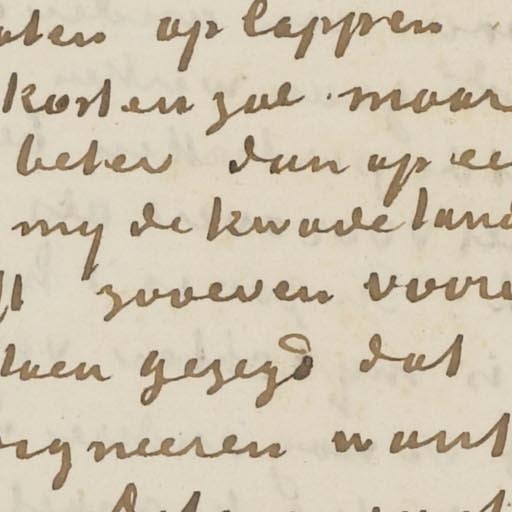 op lappen
kosten zal maar
beter dan op ee
my de kwade tand
zooeven voor
toen gezegd dat
igneeren want